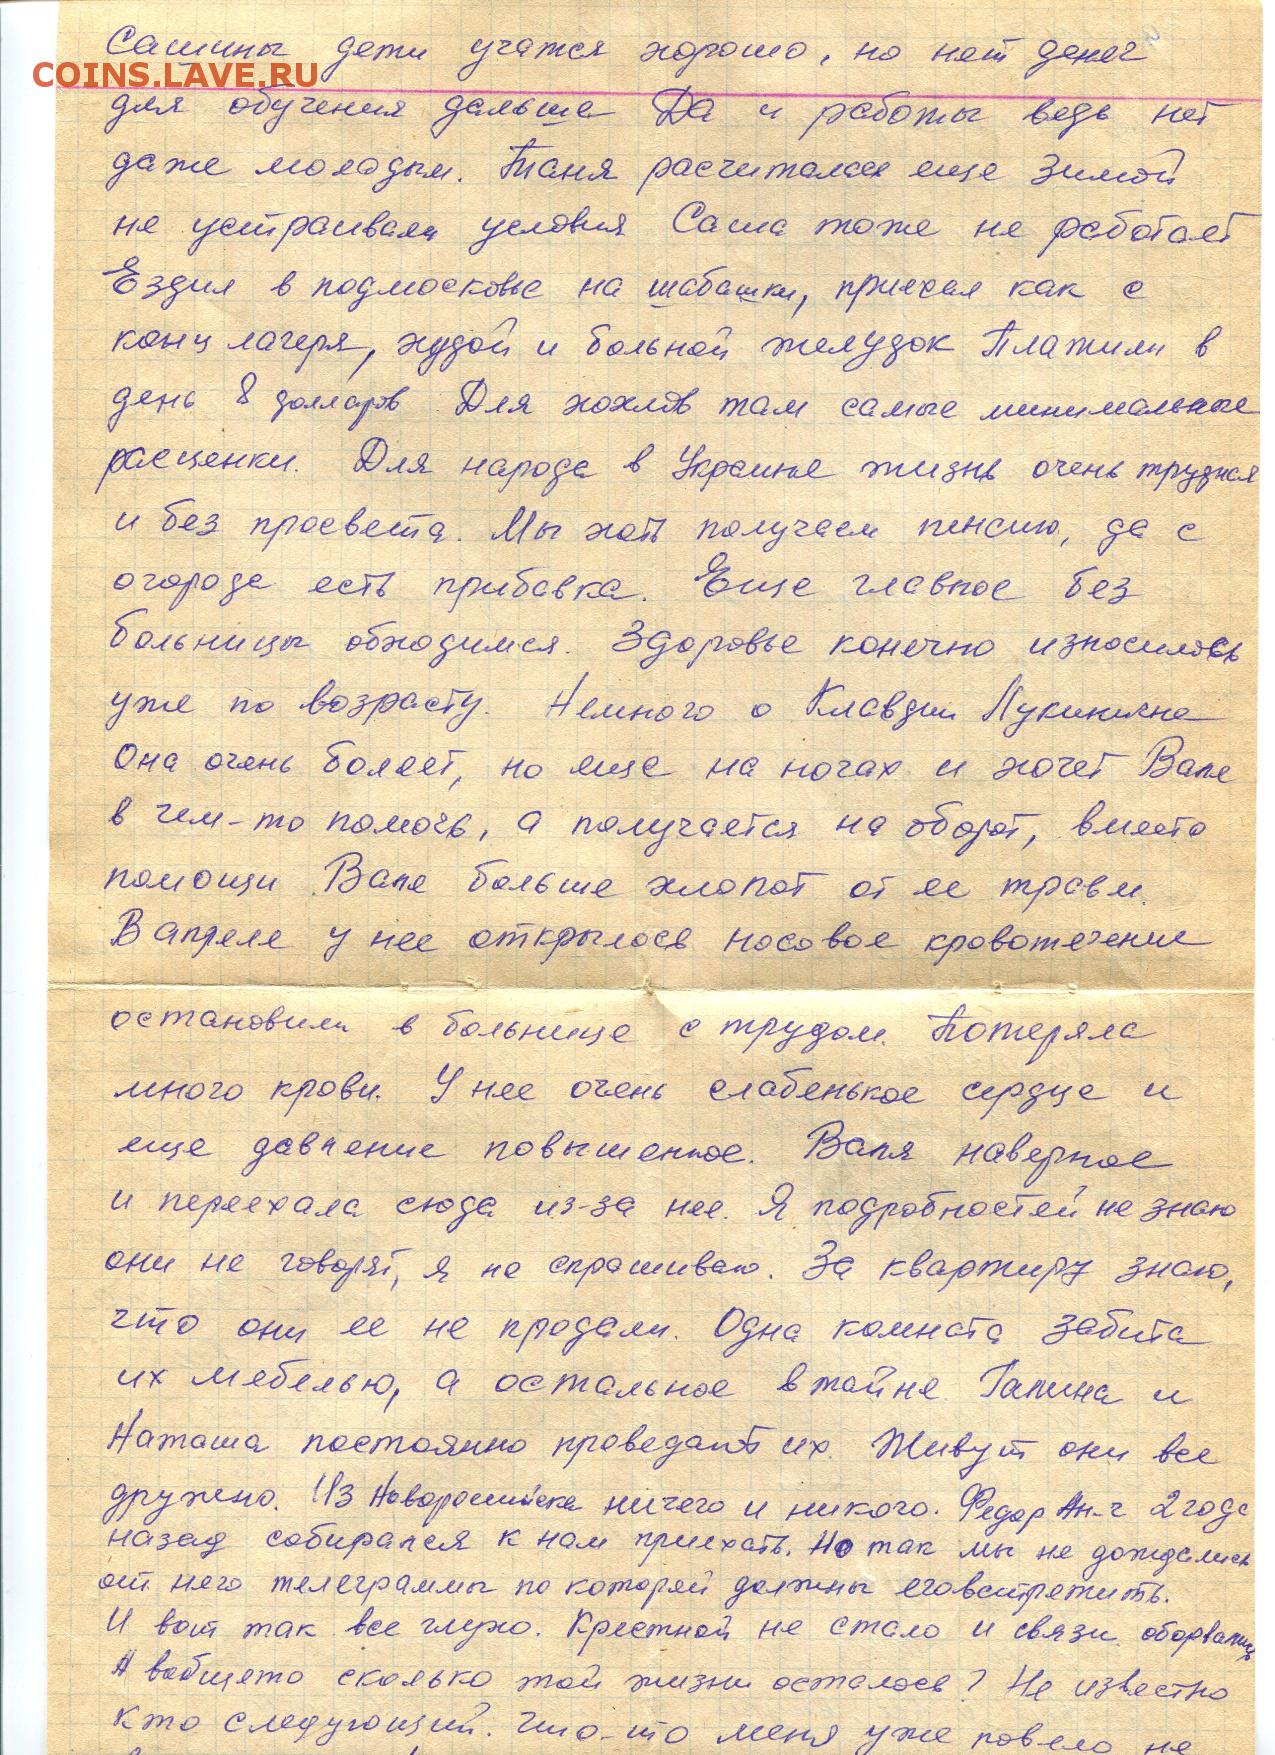 Сашины дети учатся хорошо, но нет денег
COINS.LAVE.RU
для обучения дальше Да и работы ведь нет
даже молодым. Таня расчиталась еще зимой
не устраивали условия Саша тоже не работает
Ездил в подмосковье на шабашки, приехал как с
конц лагеря, худой и больной желудок Платили в
день 8 долларов Для хохлов там самые минимальные
расценки. Для народа в Украине жизнь очень трудная
и без просвета. Мы хоть получаем пенсию, да с
огорода есть прибавка. Еще главное без
больницы обходимся. Здоровье конечно износилось
уже по возрасту. Немного о Клавдии Лукиничне
Она очень болеет, но еще на ногах и хочет Вале
в чем-то помочь, а получается на оборот, вместо
помощи Вале больше хлопот от ее травм.
В апреле у нее открылось носовое кровотечение
остановили в больнице с трудом. Потеряла
много крови. У нее очень слабенькое сердце и
еще давление повышенное. Валя наверное
и переехала сюда из-за нее. Я подробностей не знаю
они не говорят, я не спрашиваю. За квартиру знаю,
что они ее не продали. Одна комната забита
их мебелью, а остальное в тайне. Галина и
Наташа постоянно проведают их. Живут они все
дружно. Из Новороссийска ничего и никого. Федор Ан-ч 2 года
назад собирался к нам приехать. Но так мы не дождались
от него телеграммы по которой должны его встретить.
И вот так все глухо. Крестной не стало и связи оборвались
А вобщето сколько той жизни осталось? Не известно
кто следующий. Что-то меня уже повело не